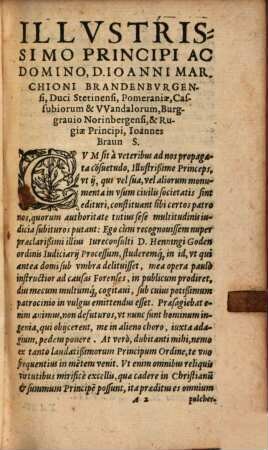 ILLVSTRIS-
SIMO PRINCIPI AC
DOMINO, D. IOANNI MAR.
CHIONI BRANDENBVRGEN-
si, Duci Stetinensi, Pomeraniæ, Cas-
subiorum & VVandalorum, Burg-
grauio Norinbergensi, & Ru-
giæ Principi, Ioannes
Braun S.
CVM sit à veteribus ad nos propaga-
ta cõsuetudo, Illustrissime Princeps,
vt ij, qui vel sua, vel aliorum monu-
menta in vsum ciuilis societatis sint
edituri, constituant sibi certos patro-
nos, quorum authoritate tutius sese multitudinis iu-
dicia subituros putant: Ego cùm recognouissem nuper
præclarissimi illius Iureconsulti D. Henningi Goden
ordinis Iudiciarij Processum, studeremq́, in id, vt qui
antea domi sub vmbra delituisset, mea opera paulo
instructior ad causas Forenses, in publicum prodiret,
diu mecum multumq́, cogitaui, sub cuius potissimum
patrocinio in vulgus emittendus esset. Præsagiebat e-
nim animus, non defuturos, vt nunc sunt hominum in-
genia, qui obijcerent, me in alieno choro, iuxta ada-
gium, pedem ponere. At verò, dubitanti mihi, nemo
ex tanto laudatissimorum Principum Ordine, te vno
frequentius in mẽtem venit. Vt enim omnibus reliquis
virtutibus mirificè excellis, quæ cadere in Christianũ
& summum Principẽ possunt, ita præditus es omnium
A 2 pulcher-